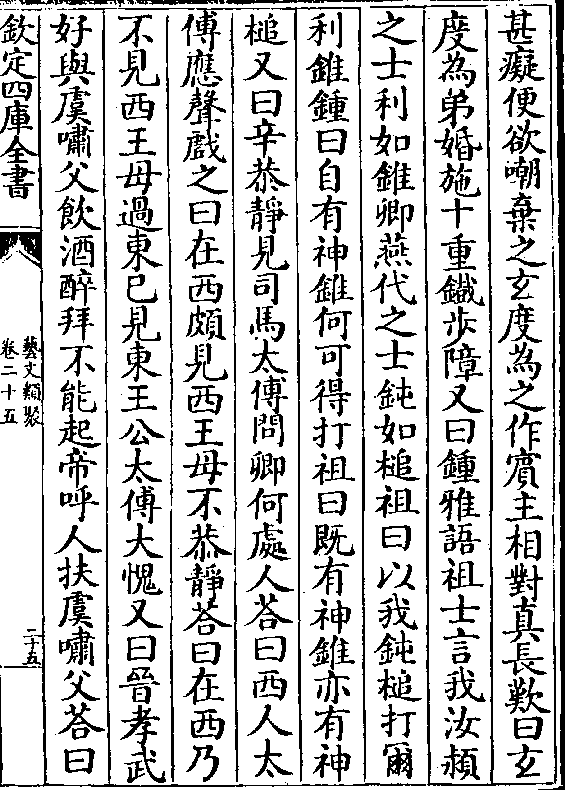 甚癡便欲嘲棄之玄度為之作賓主相對真長歎曰玄
度為弟婚施十重鐵步障又曰鍾雅語祖士言我汝潁
之士利如錐卿燕代之士鈍如槌祖曰以我鈍槌打爾
利錐鍾曰自有神錐何可得打祖曰既有神錐亦有神
槌又曰辛恭靜見司馬太傅問卿何處人荅曰西人太
傅應聲戲之曰在西頗見西王母不恭靜荅曰在西乃
不見西王母過東已見東王公太傅大愧又曰晉孝武
好與虞嘯父飲酒醉拜不能起帝呼人扶虞嘯父荅曰
欽定四庫全書
藝文類聚
卷二十五
二十五